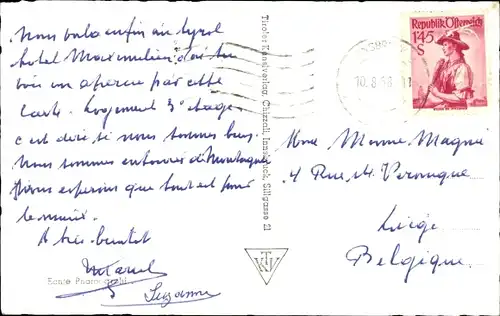 Nous voilà enfin au tyrol
hotel Maximilien d'où tu
vois un aperçu par cette
carte. Logement 3e étage
c'est dire si nous sommes bien.
Nous sommes entourés de Montagnes
Nous espérons que tout est pour
le mieux.
A très bientôt
Marcel
Suzanne
Echte Photographie
Tiroler Kunstverlag, Chizzali, Innsbruck, Sillgasse 21
TKV
Republik Österreich
1.45
S
10.8.58.11
Mme
4 Rue St. Veronique
Liège
Belgique